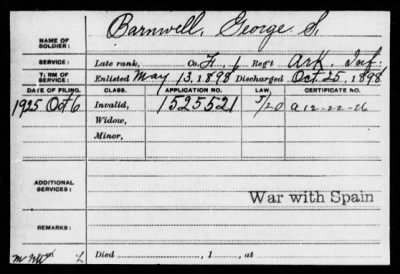 Barnwell, George S.
NAME OF SOLDIER:
SERVICE: Late rank, Co. F, 1 Reg't Ark. Inf.
TERM OF SERVICE: Enlisted May 13, 1898 Discharged Oct. 25, 1898
DATE OF FILING. CLASS. APPLICATION NO. LAW. CERTIFICATE NO.
1925 Oct 6 Invalid, 1525521 5/20 a 12-22-26
Widow,
Minor,
ADDITIONAL SERVICES:
War with Spain
REMARKS:
Died , 1 , at